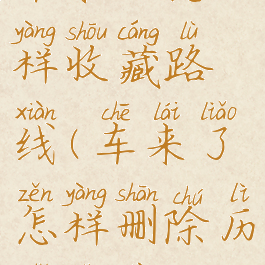 yàng shōu cáng lù
样收藏路
xiàn chē lái liǎo
线(车来了
zěn yàng shān chú lì
怎样删除历